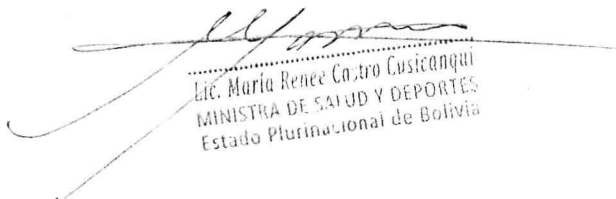 Lic. María Renee Castro Cusicanqui
MINISTRA DE SALUD Y DEPORTES
Estado Plurinacional de Bolivia